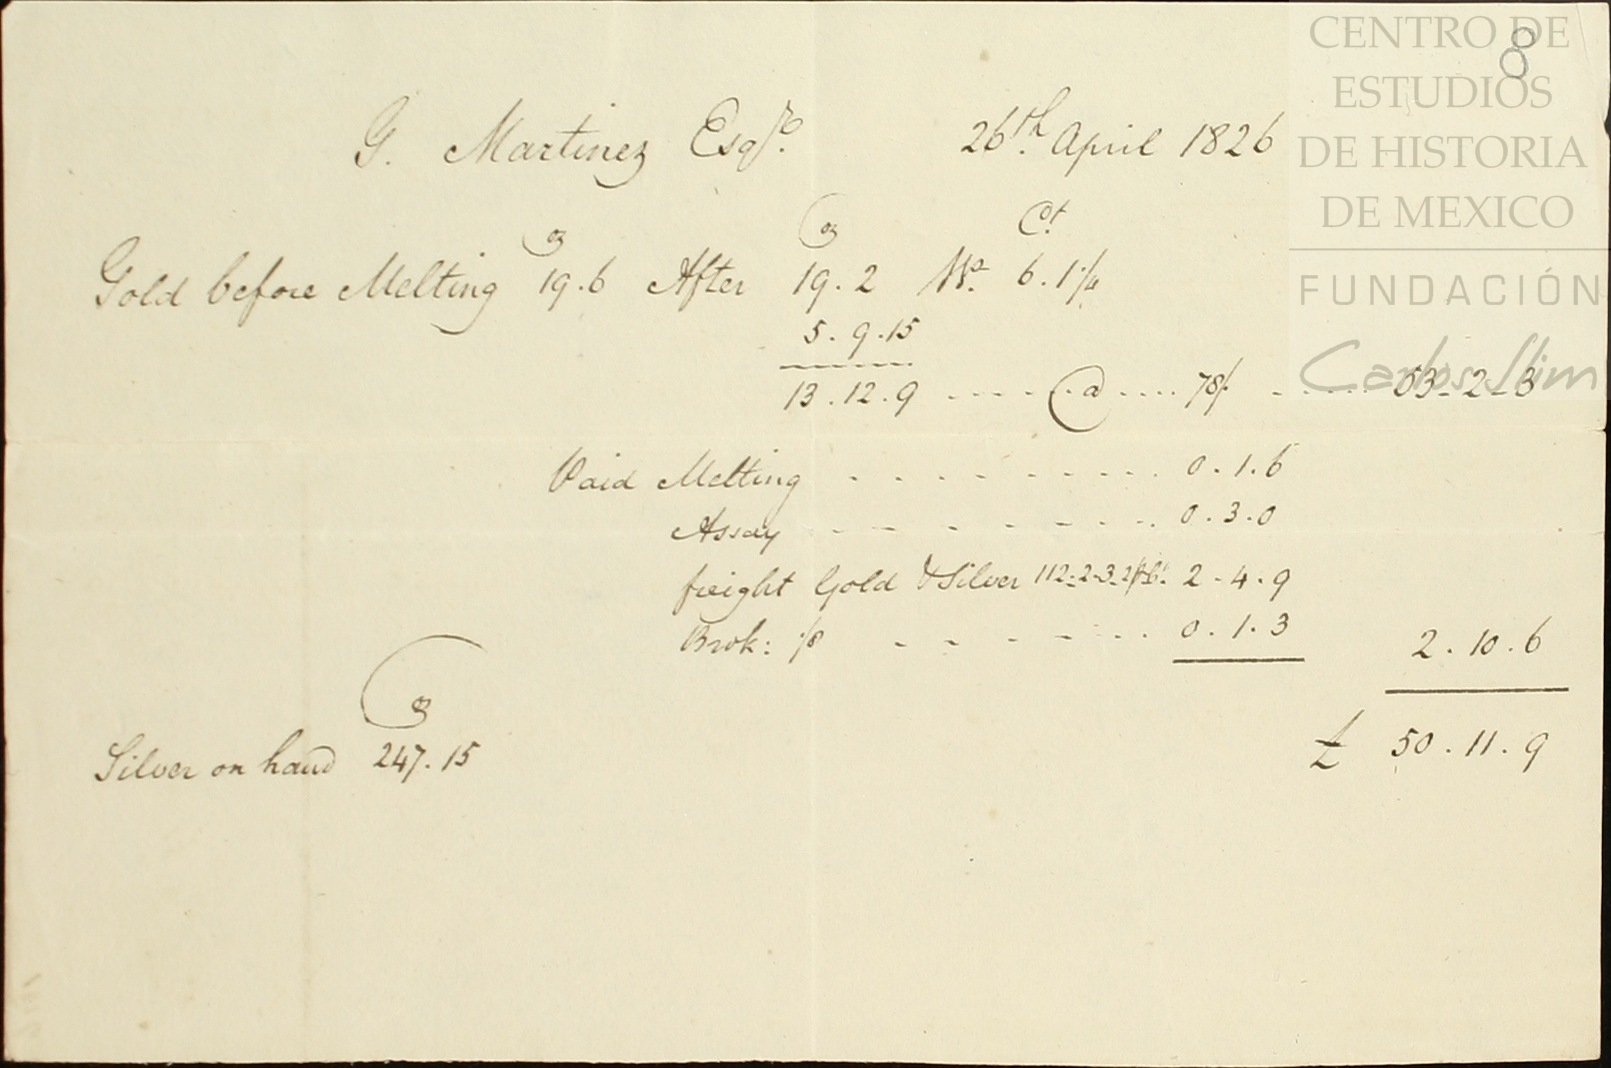 8
CENTRO DE
ESTUDIOS
DE HISTORIA
DE MEXICO
FUNDACIÓN
Carlos Slim
G. Martinez Esqre. 26th. April 1826
oz oz Ct.
Gold before Melting 19.6 After 19.2 Wo. 6.1 1/4
5.9.15
13.12.9 ---- @ .... 78/. ------ 53-2-3
Paid Melting - - - - - - - - - 0.1.6
Assay - - - - - - - - 0.3.0
freight Gold & Silver 112-2-3-2 2-4.9
Brok: 1/8 - - - - - - - 0.1.3 2.10.6
oz
Silver on hand 247.15 £ 50.11.9